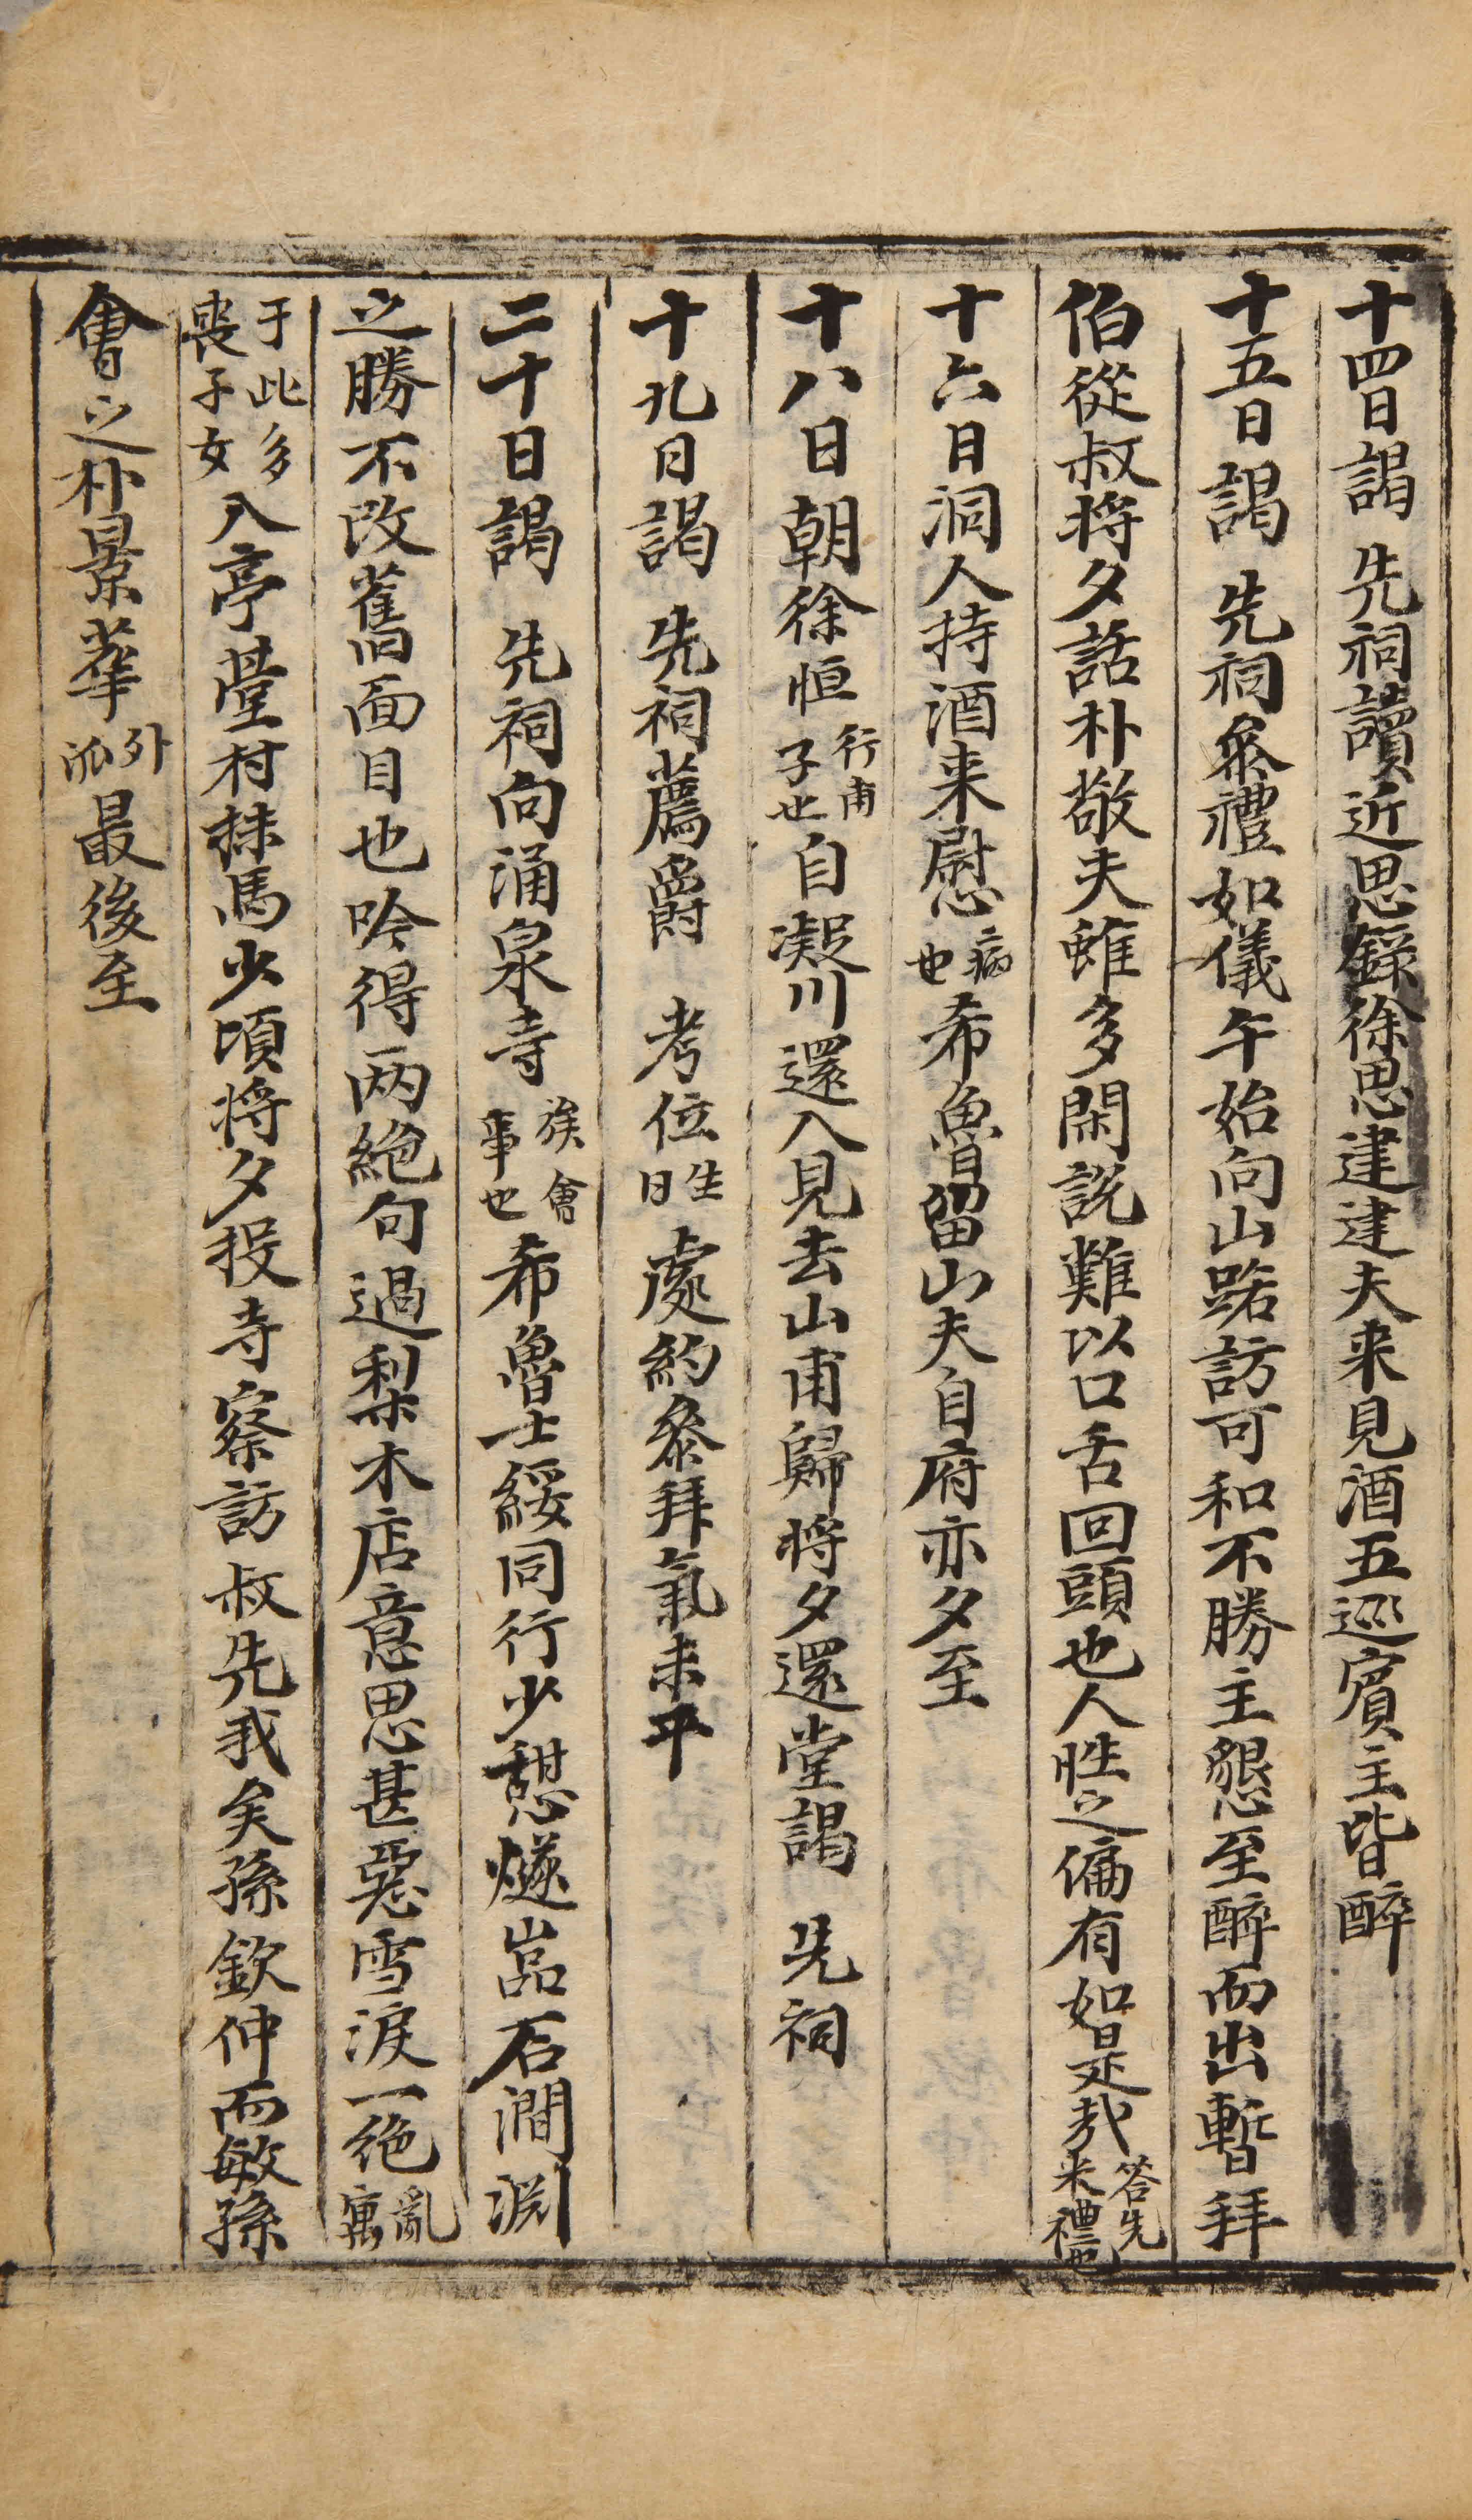 十四日謁 先祠讀近思錄徐思建建夫来見酒五巡賓主皆醉
十五日謁 先祠叅禮如儀午始向山踏訪可和不勝主懇至醉而出暫拜
伯從叔将夕話朴敬夫雖多閑説難以口舌回頭也人性之偏有如是㢤答先来禮也
十六日洞人持酒来慰病也希魯留山夫自府亦夕至
十八日朝徐恒行甫子也自凝川還入見去山甫歸将夕還堂謁 先祠
十九日謁 先祠薦爵 考位生日處約叅拜氣未平
二十日謁 先祠向涌泉寺族會事也希魯士綏同行少憩燧嵓石澗淵
之勝不改舊面目也吟得两絶句過梨木店意思甚惡雪淚一絶亂寓
于此多喪子女入亭䑓村抹馬少頃将夕投寺察訪叔先我矣孫欽仲而敏孫
會之朴景華外派最後至